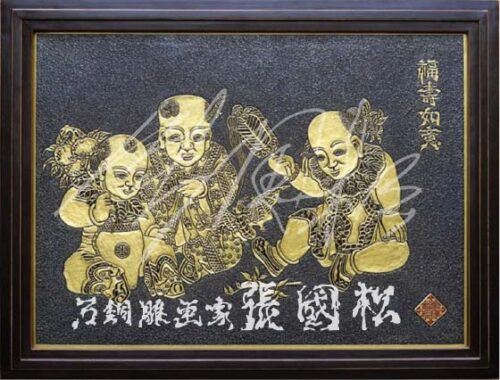 福壽如意
名銅雕画家張國松